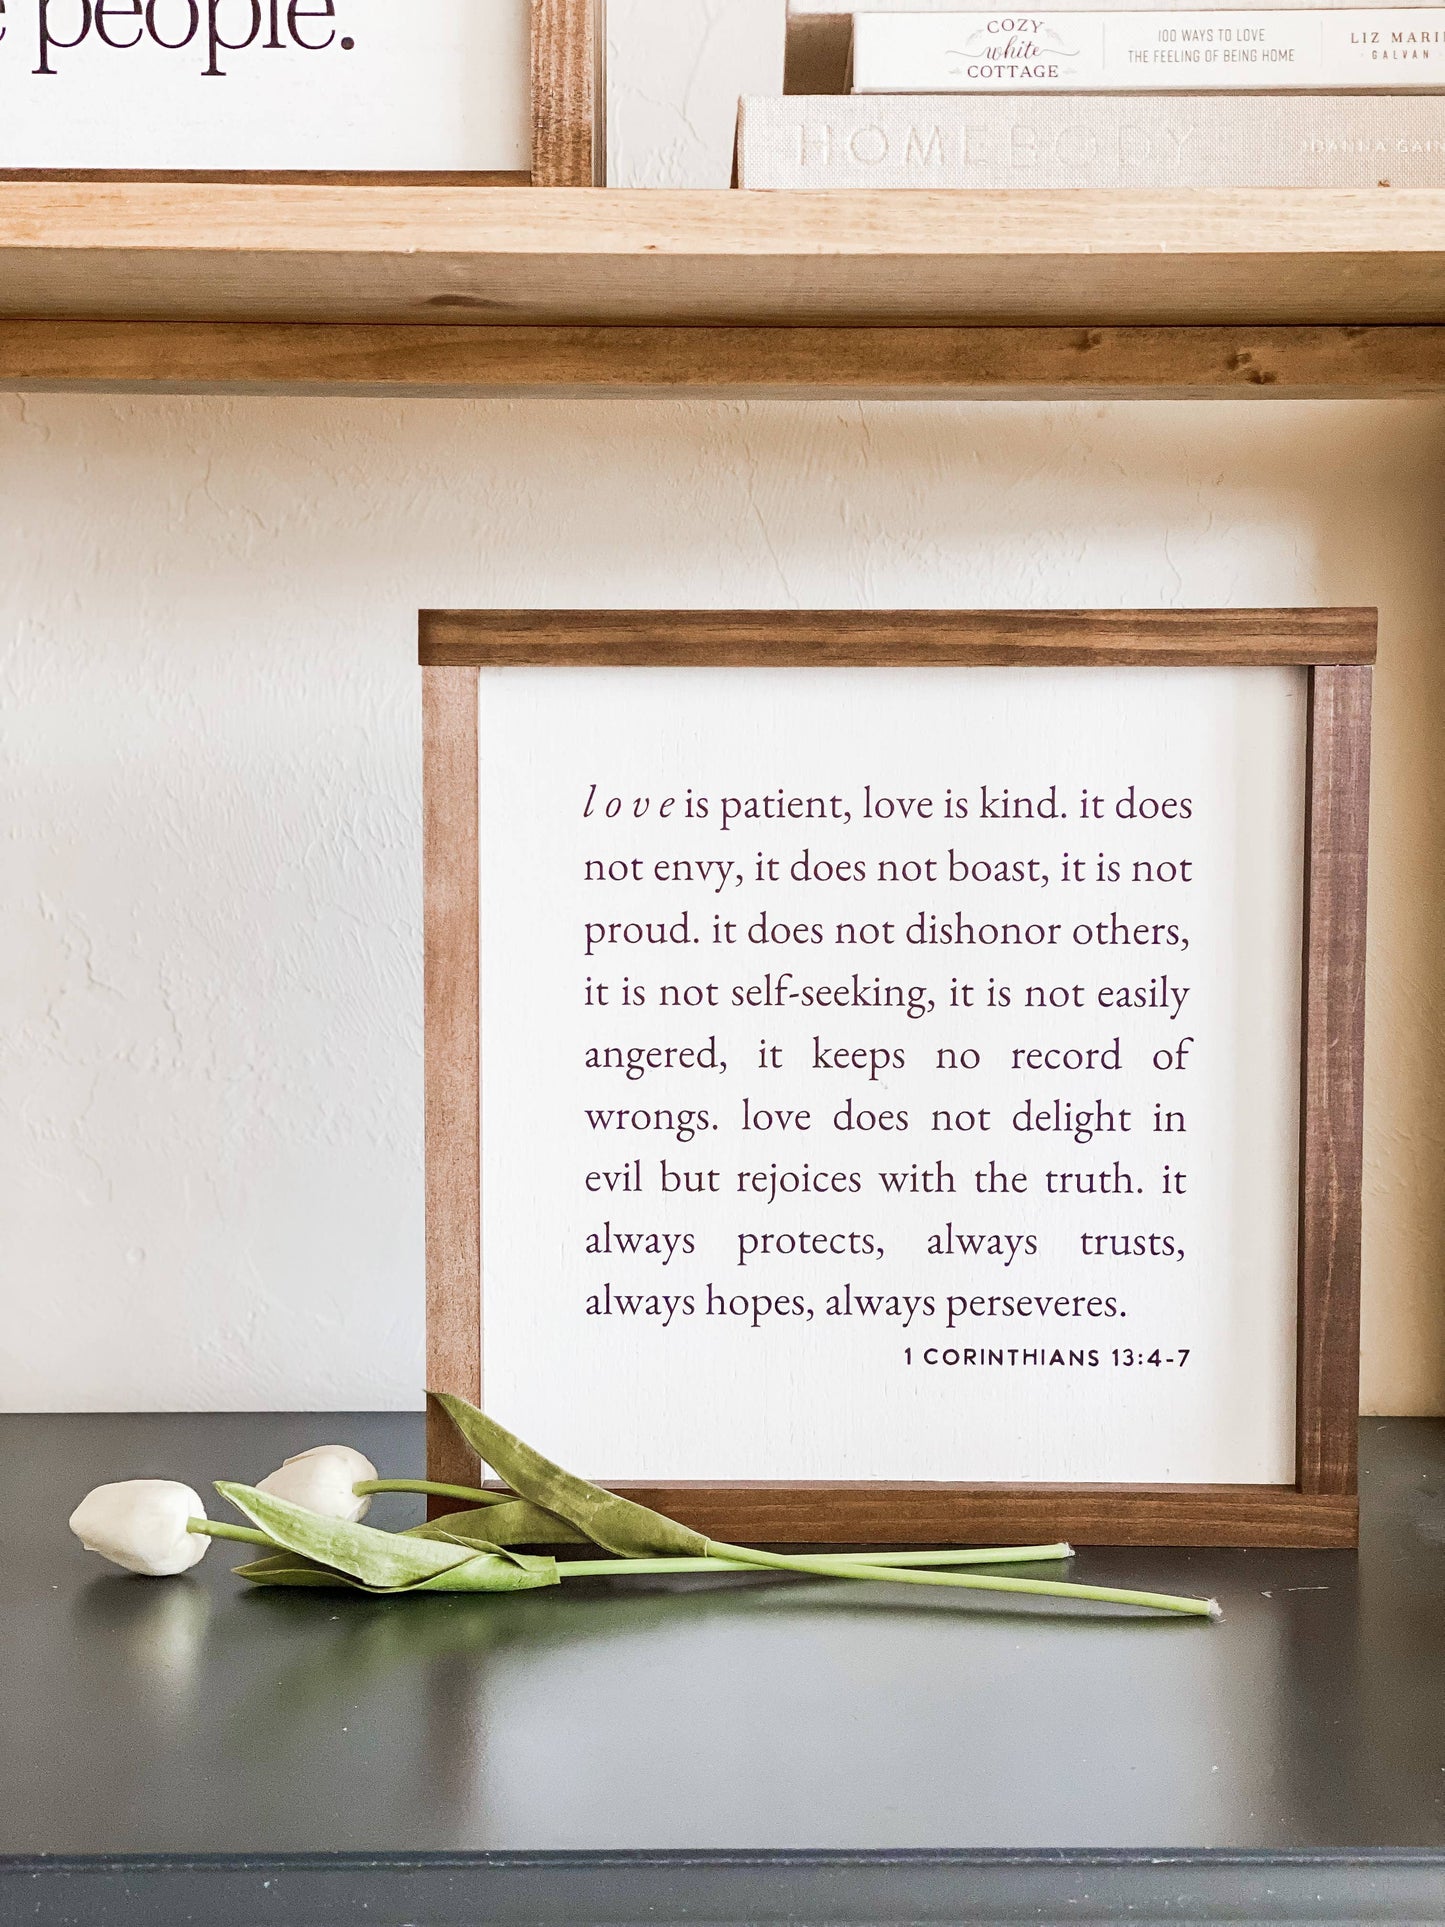 people.
COZY
white
COTTAGE
100 WAYS TO LOVE
THE FEELING OF BEING HOME
LIZ MARI
GALVAN
HOMEBODY
JOANNA GAIN
love is patient, love is kind. it does
not envy, it does not boast, it is not
proud. it does not dishonor others,
it is not self-seeking, it is not easily
angered, it keeps no record of
wrongs. love does not delight in
evil but rejoices with the truth. it
always protects, always trusts,
always hopes, always perseveres.
1 CORINTHIANS 13:4-7